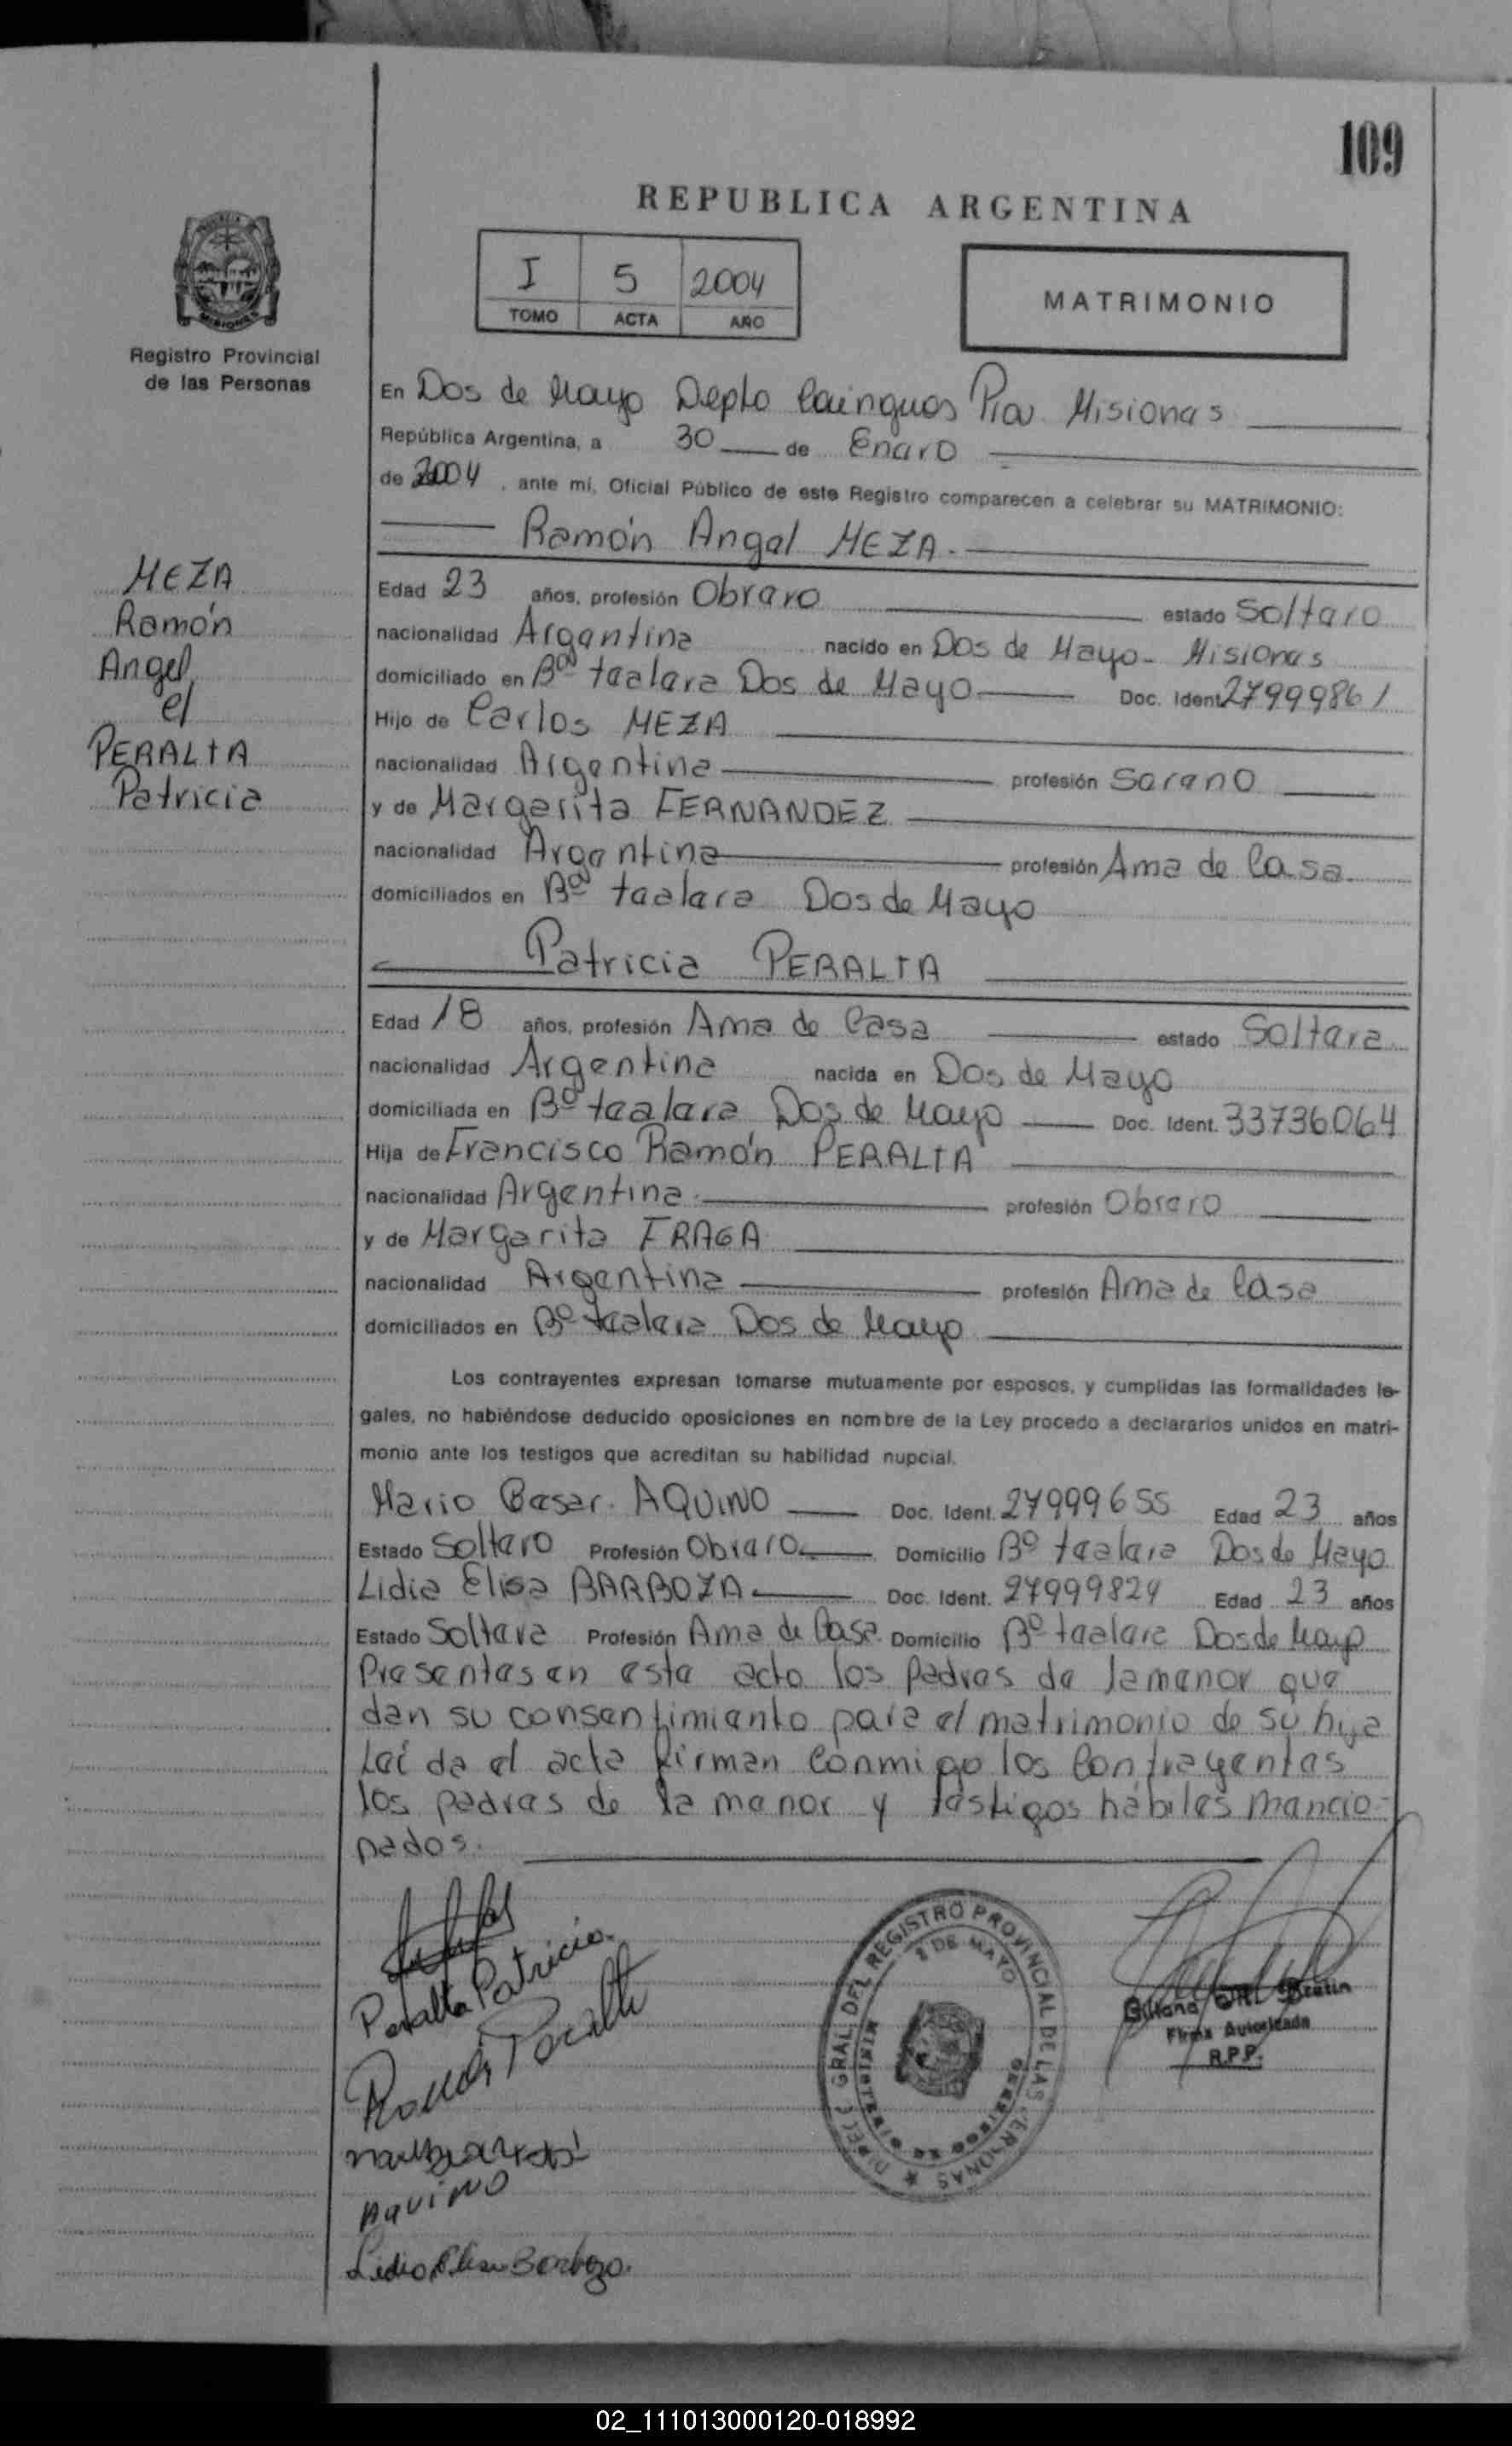 109
REPUBLICA ARGENTINA
I 5 2004
TOMO ACTA AÑO
MATRIMONIO
Registro Provincial
de las Personas
MEZA
Ramón
Angel
c/
PERALTA
Patricia
En Dos de Mayo Depto Cainguas Pia Misiones
República Argentina, a 30 de Enero
de 2004, ante mí, Oficial Público de este Registro comparecen a celebrar su MATRIMONIO:
Ramón Angel MEZA.-
Edad 23 años, profesión Obrero estado Soltero
nacionalidad Argentina nacido en Dos de Mayo- Misiones
domiciliado en Bº tealera Dos de Mayo Doc. Ident. 27999861
Hijo de Carlos MEZA
nacionalidad Argentina profesión Sereno
y de Margarita FERNANDEZ
nacionalidad Argentina profesión Ama de Casa
domiciliados en Bº tealera Dos de Mayo
Patricia PERALTA
Edad 18 años, profesión Ama de Casa estado Soltera
nacionalidad Argentina nacida en Dos de Mayo
domiciliada en Bº tealera Dos de Mayo Doc. Ident. 33736064
Hija de Francisco Ramón PERALTA
nacionalidad Argentina profesión Obrero
y de Margarita FRAGA
nacionalidad Argentina profesión Ama de Casa
domiciliados en Bº tealera Dos de Mayo
Los contrayentes expresan tomarse mutuamente por esposos, y cumplidas las formalidades le-
gales, no habiéndose deducido oposiciones en nombre de la Ley procedo a declararlos unidos en matri-
monio ante los testigos que acreditan su habilidad nupcial.
Mario Cesar AQUINO Doc. Ident. 27999655 Edad 23 años
Estado Soltero Profesión Obrero Domicilio Bº tealera Dos de Mayo
Lidia Elisa BARBOZA Doc. Ident. 27999824 Edad 23 años
Estado Soltera Profesión Ama de Casa Domicilio Bº tealera Dos de Mayo
Presentes en este acto los padres de la menor que
dan su consentimiento para el matrimonio de su hija
Leída el acta firman conmigo los contrayentes
los padres de la menor y testigos hábiles mancio-
nados.
Peralta Patricia.
Ramón Peralta
AQUINO
Lidia Elisa Barboza.
DIREC. GRAL. DEL REGISTRO PROVINCIAL DE LAS PERSONAS
2 DE MAYO
MINISTERIO DE GOBIERNO
Firma Autorizada
R.P.P.
02_111013000120-018992